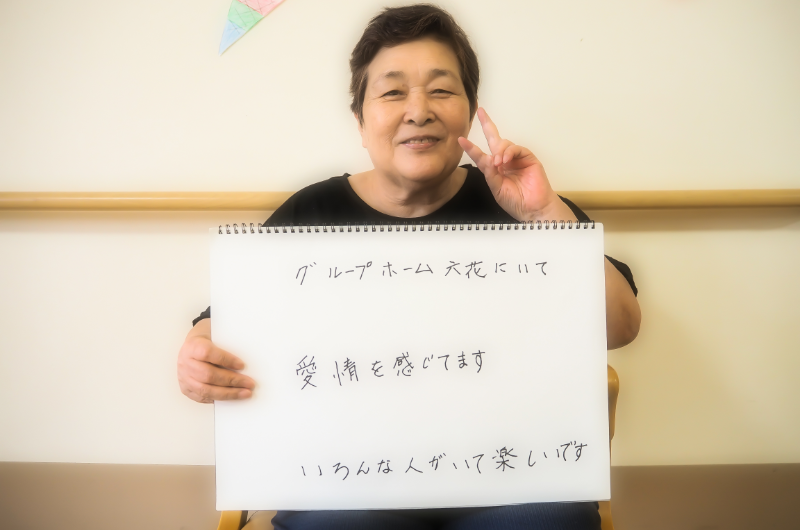 グループホーム六花にいて
愛情を感じてます
いろんな人がいて楽しいです